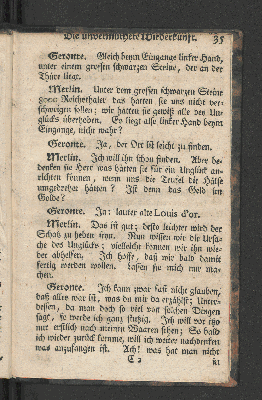 Die unvermuthete Wiederkunft. 35
Geronte. Gleich beym Eingange linker Hand,
unter einem großen schwarzen Steine, der an der
Thüre liegt.
Merlin. Unter dem großen schwarzen Steine
Reicherthaler das hätten sie uns nicht ver-
schweigen sollen; wir hätten sie gewiß alle des Un-
glücks überhoben. Es liegt also linker Hand beym
Eingange, nicht wahr?
Geronte. Ja, der Ort ist leicht zu finden.
Merlin. Ich will ihn schon finden. Aber be-
denken sie Herr was hätten sie für ein Unglück an-
richten können, wenn uns die Teufel die Hälse
umgedrehet hätten? Ist denn das Geld im
Golde?
Geronte. Ja: lauter alte Louis d'or.
Merlin. Das ist gut; desto leichter wird der
Schatz zu heben seyn. Nun wissen wir die Ursa-
che des Unglücks; vielleicht können wir ihm wie-
der abhelfen. Ich hoffe, daß wir bald damit
fertig werden wollen. Lassen sie mich nur ma-
chen.
Geronte. Ich kann zwar fast nicht glauben,
daß alles war ist, was du mir da erzählst; Unter-
dessen, da man doch so viel von solchen Dingen
sagt, so werde ich ganz stutzig. Ich will vor itzo
nur erstlich nach meinen Waaren sehen; So bald
ich wieder zurück komme, will ich weiter nachdenken
was anzufangen ist. Ach! was hat man nicht
C 2